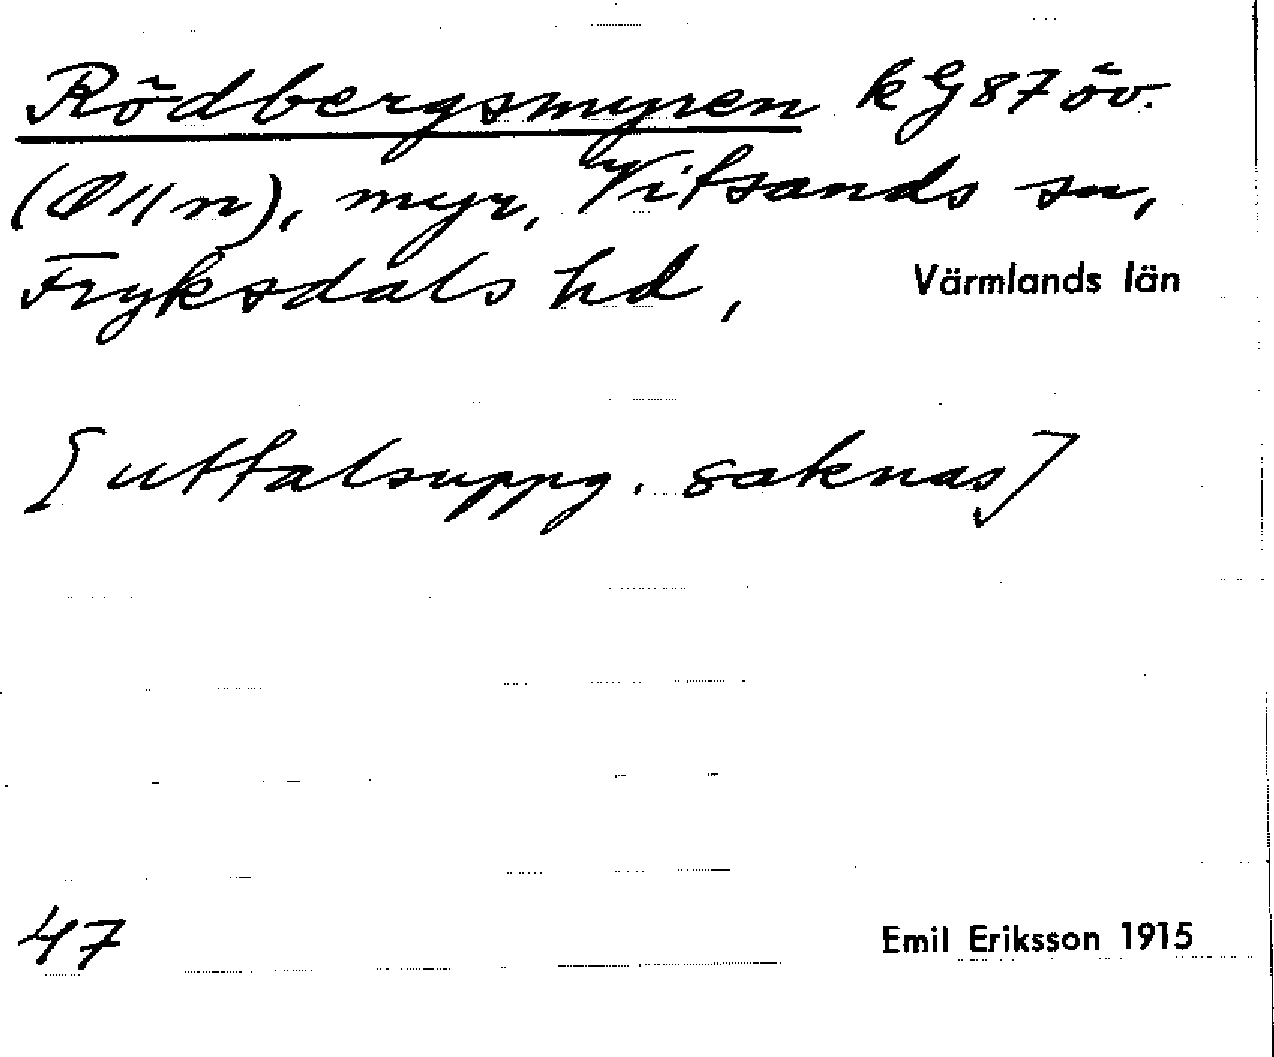 Rödbergsmyren k G 87 öv.
(Ø II n), myr, Vitsands sn,
Fryksdals hd, Värmlands län
[uttalsuppg. saknas]
47 Emil Eriksson 1915